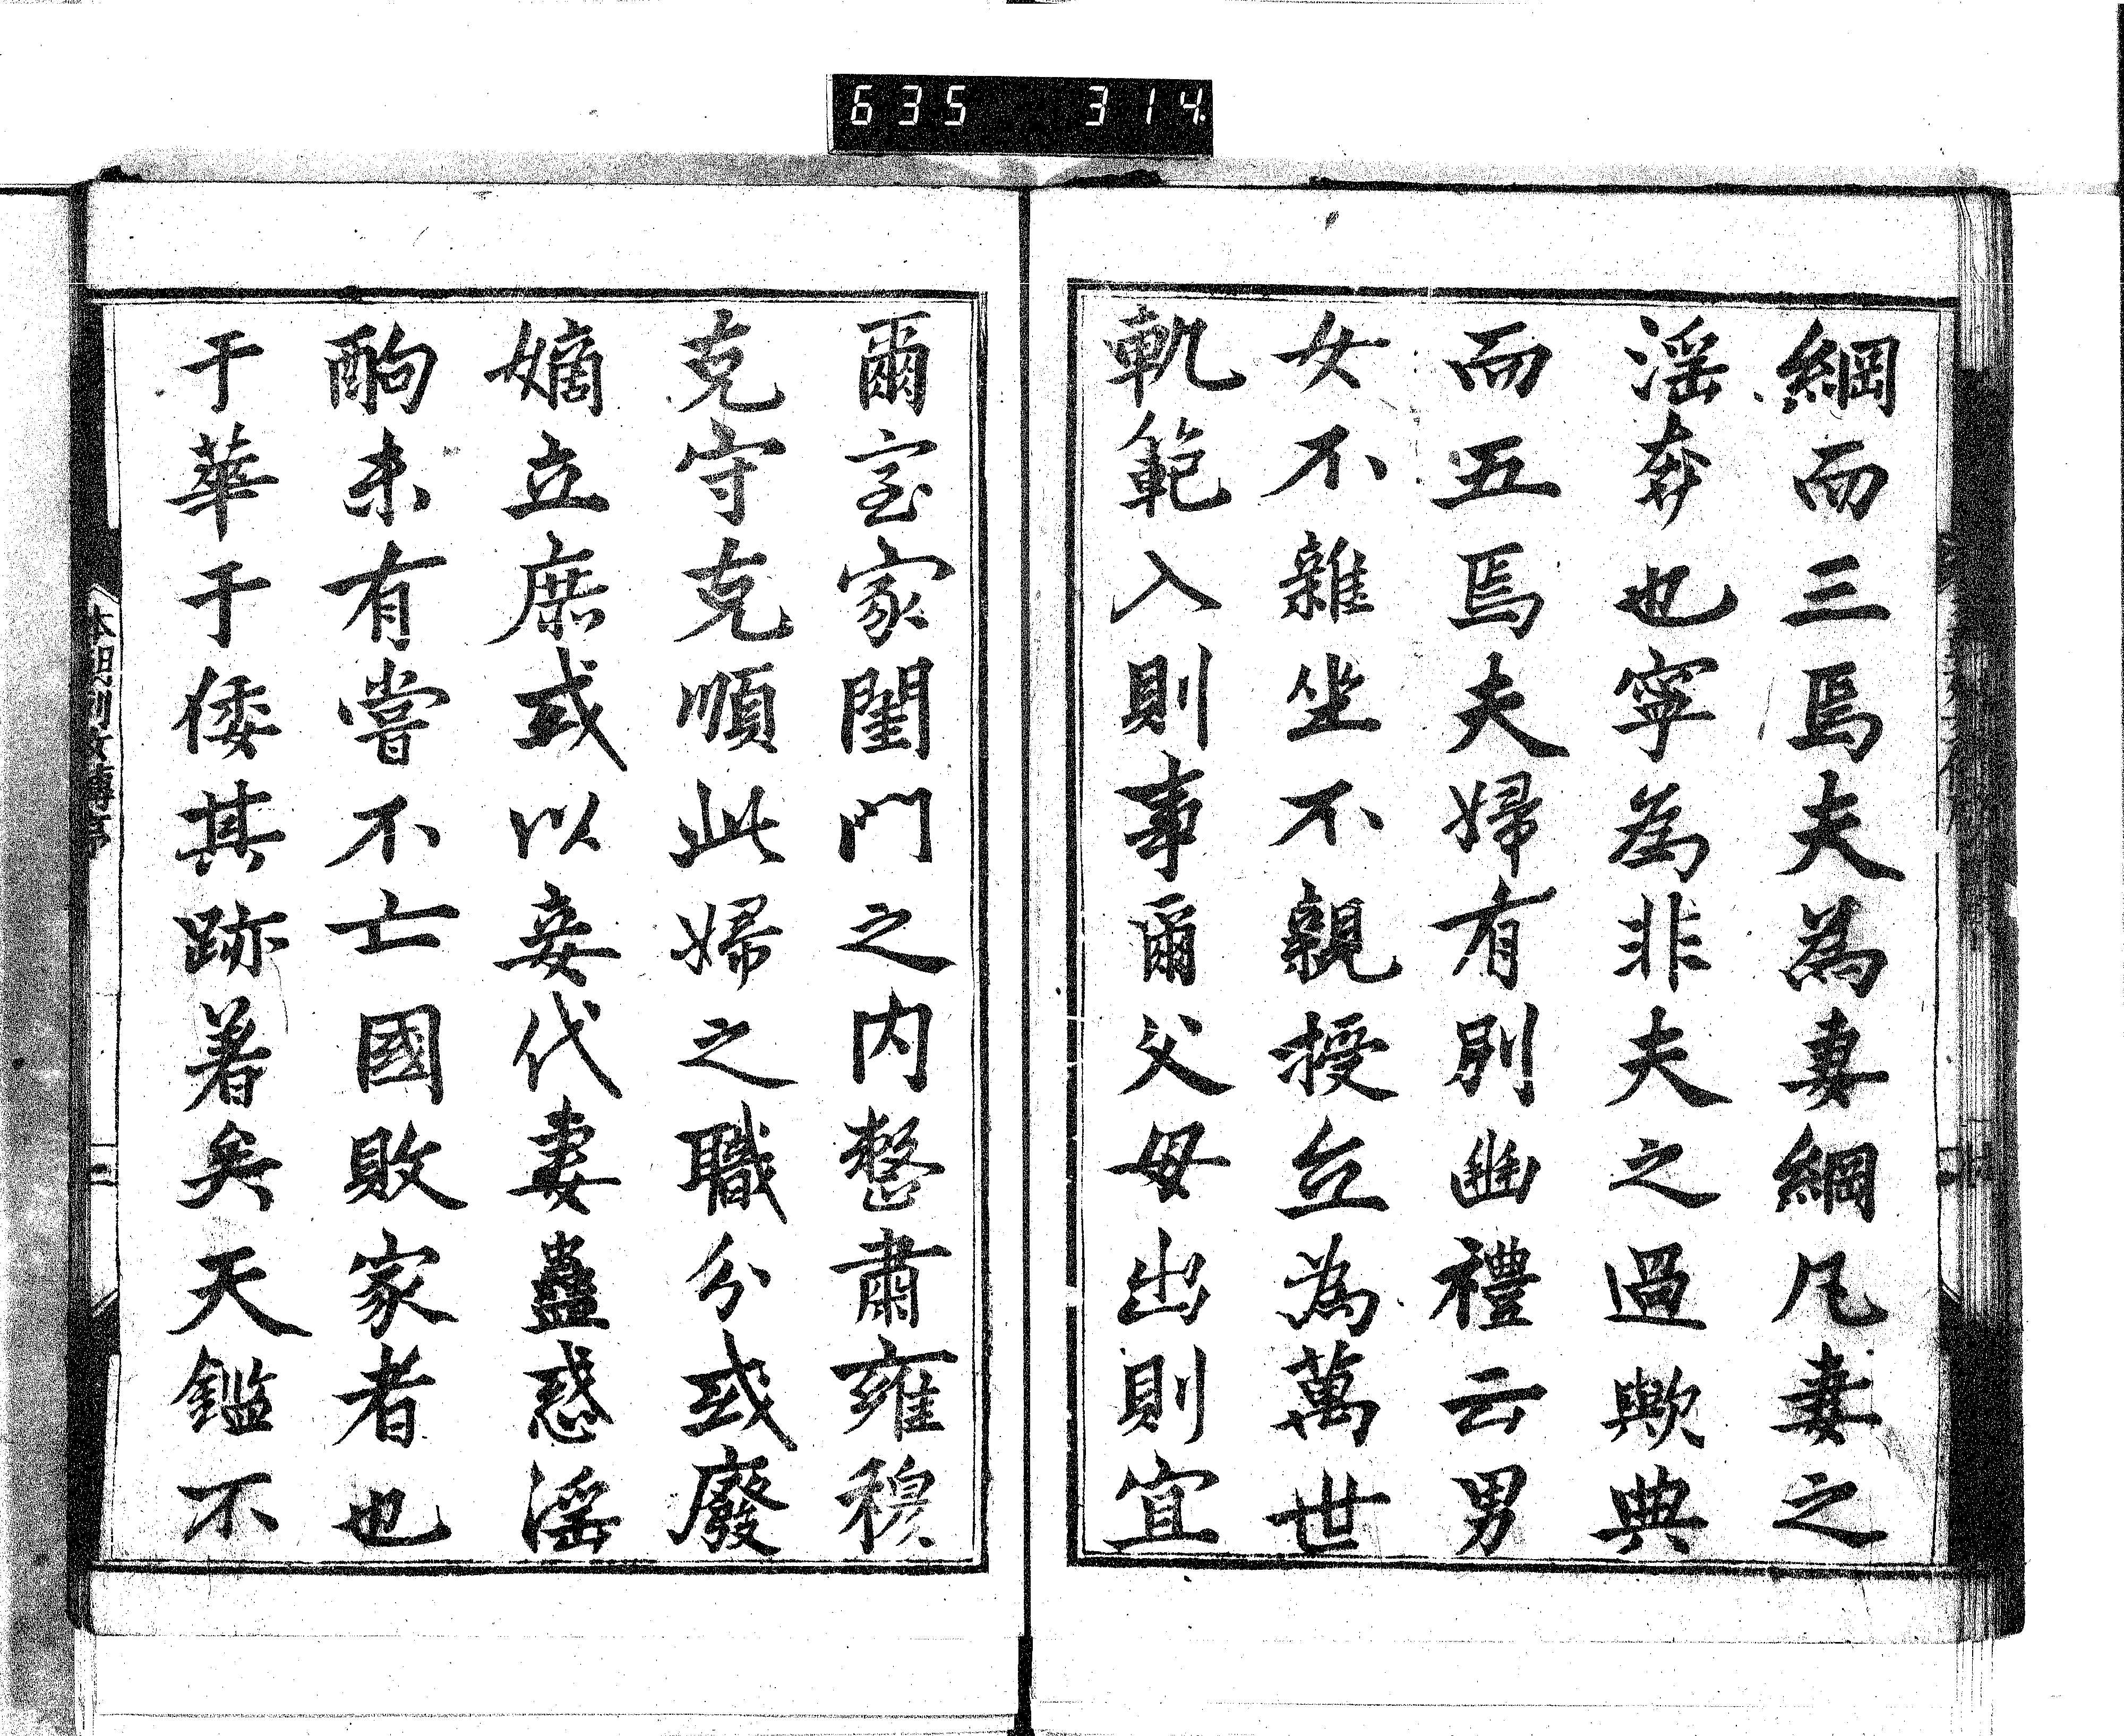 635 314
綱而三焉夫為妻綱凡妻之
滛奔也寧為非夫之過歟典
而五焉夫婦有別幽禮云男
女不雜坐不親授立為萬世
軌範入則事爾父母出則宜
爾室家閨門之内整肅雍穆
克守克順此婦之職分或廢
嫡立庶或以妾代妻蠱惑滛
酗未有嘗不亡國敗家者也
于華于倭其跡著矣天鑑不